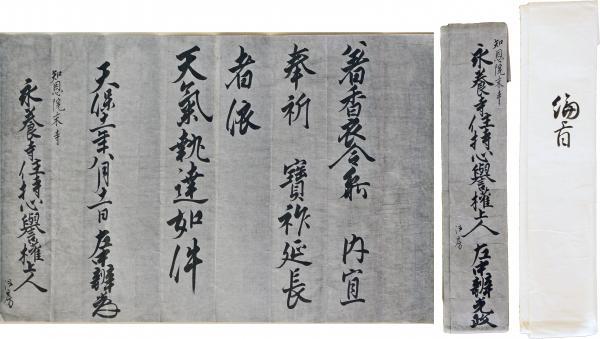 綸旨
知恩院末寺
永養寺住持心譽權上人 左中辨光政
著香衣令參 内宜
奉祈 寶祚延長
者依
天氣執達如件
天保 年八月 日 左中辨
知恩院末寺
永養寺住持心譽權上人